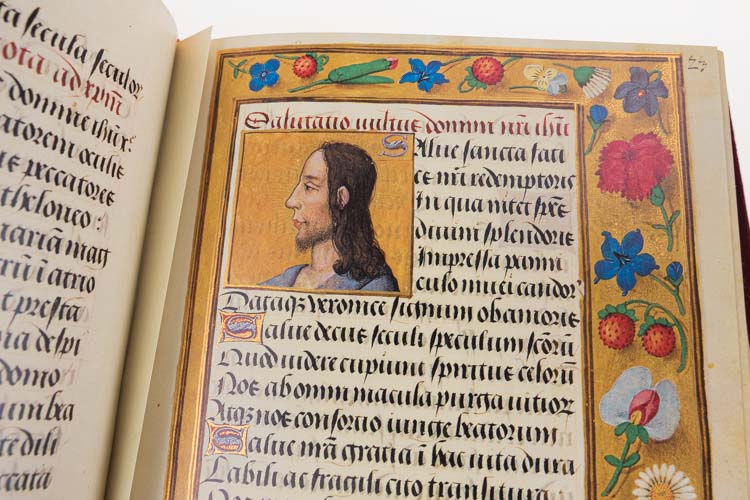 ta secula seculor
ota ad xpm̄
domine ihu x̄e
atorem oculis
us peccatores
theloneo :
nariam mag
rū ī atrio
et presta
ma despi
domo
um bea
te dili
ccata
27
Salutatio vultus domini nr̄i ihū
Salve sancta faci
es nr̄i redemptoris
In qua nitet spēs
divini splendoris
Impressa panni
culo nivei candor
Dataqꝫ veronice signum ob amoris
Salve decus seculi speculum scōrū
Quod videre cupiunt spiritus celorū
Nos ab omni macula purga vitior
Atqꝫ nos consortio iunge beatorum
Salve nr̄a gratia ī hac vita dura
Labili ac fragili cito transitura
Nos